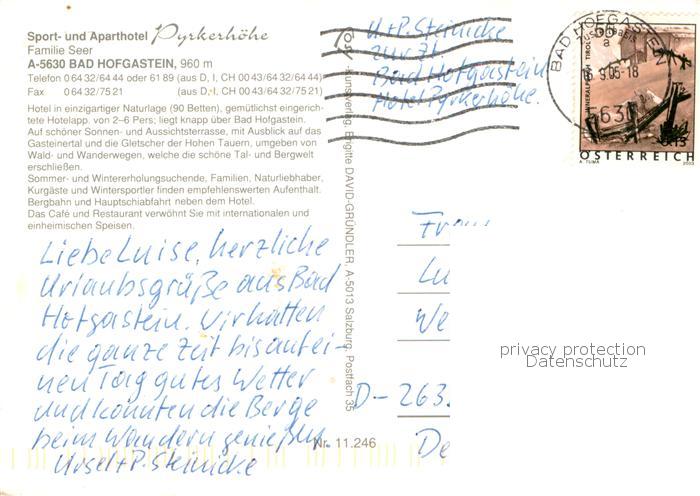 Sport- und Aparthotel Pyrkerhöhe
Familie Seer
A-5630 BAD HOFGASTEIN, 960 m
Telefon 0 64 32/64 44 oder 61 89 (aus D, I, CH 00 43/64 32/64 44)
Fax 0 64 32/75 21 (aus D, I, CH 00 43/64 32/75 21)
Hotel in einzigartiger Naturlage (90 Betten), gemütlichst eingerich-
tete Hotelapp. von 2–6 Pers; liegt knapp über Bad Hofgastein.
Auf schöner Sonnen- und Aussichtsterrasse, mit Ausblick auf das
Gasteinertal und die Gletscher der Hohen Tauern, umgeben von
Wald- und Wanderwegen, welche die schöne Tal- und Bergwelt
erschließen.
Sommer- und Wintererholungsuchende, Familien, Naturliebhaber,
Kurgäste und Wintersportler finden empfehlenswerten Aufenthalt.
Bergbahn und Hauptschiabfahrt neben dem Hotel.
Das Café und Restaurant verwöhnt Sie mit internationalen und
einheimischen Speisen.
Liebe Luise, herzliche
Urlaubsgrüße aus Bad
Hofgastein. Wir hatten
die ganze Zeit bis auf ei-
nen Tag gutes Wetter
und konnten die Berge
beim Wandern genießen
Ursel + P. Steinicke
Brigitte DAVID-GRÜNDLER, A-5013 Salzburg, Postfach 35
Nr. 11.246
U. + P. Steinicke
zur Zt.
Bad Hofgastein
Hotel Pyrkerhöhe.
BAD HOFGASTEIN
9.05-18
ÖSTERREICH
2003
Frau
Lu
We
D- 263
De
privacy protection
Datenschutz